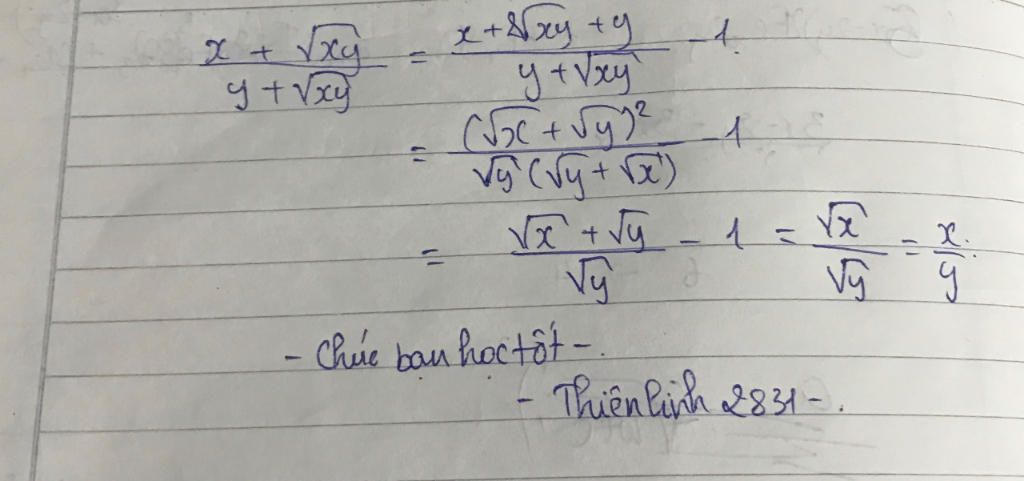 x + √xy / y + √xy = x + 2√xy + y / y + √xy - 1.
= (√x + √y)² / √y (√y + √x) - 1
= √x + √y / √y - 1 = √x / √y = x / y.
- Chúc bạn học tốt -.
- Thiên Linh 2831 -.